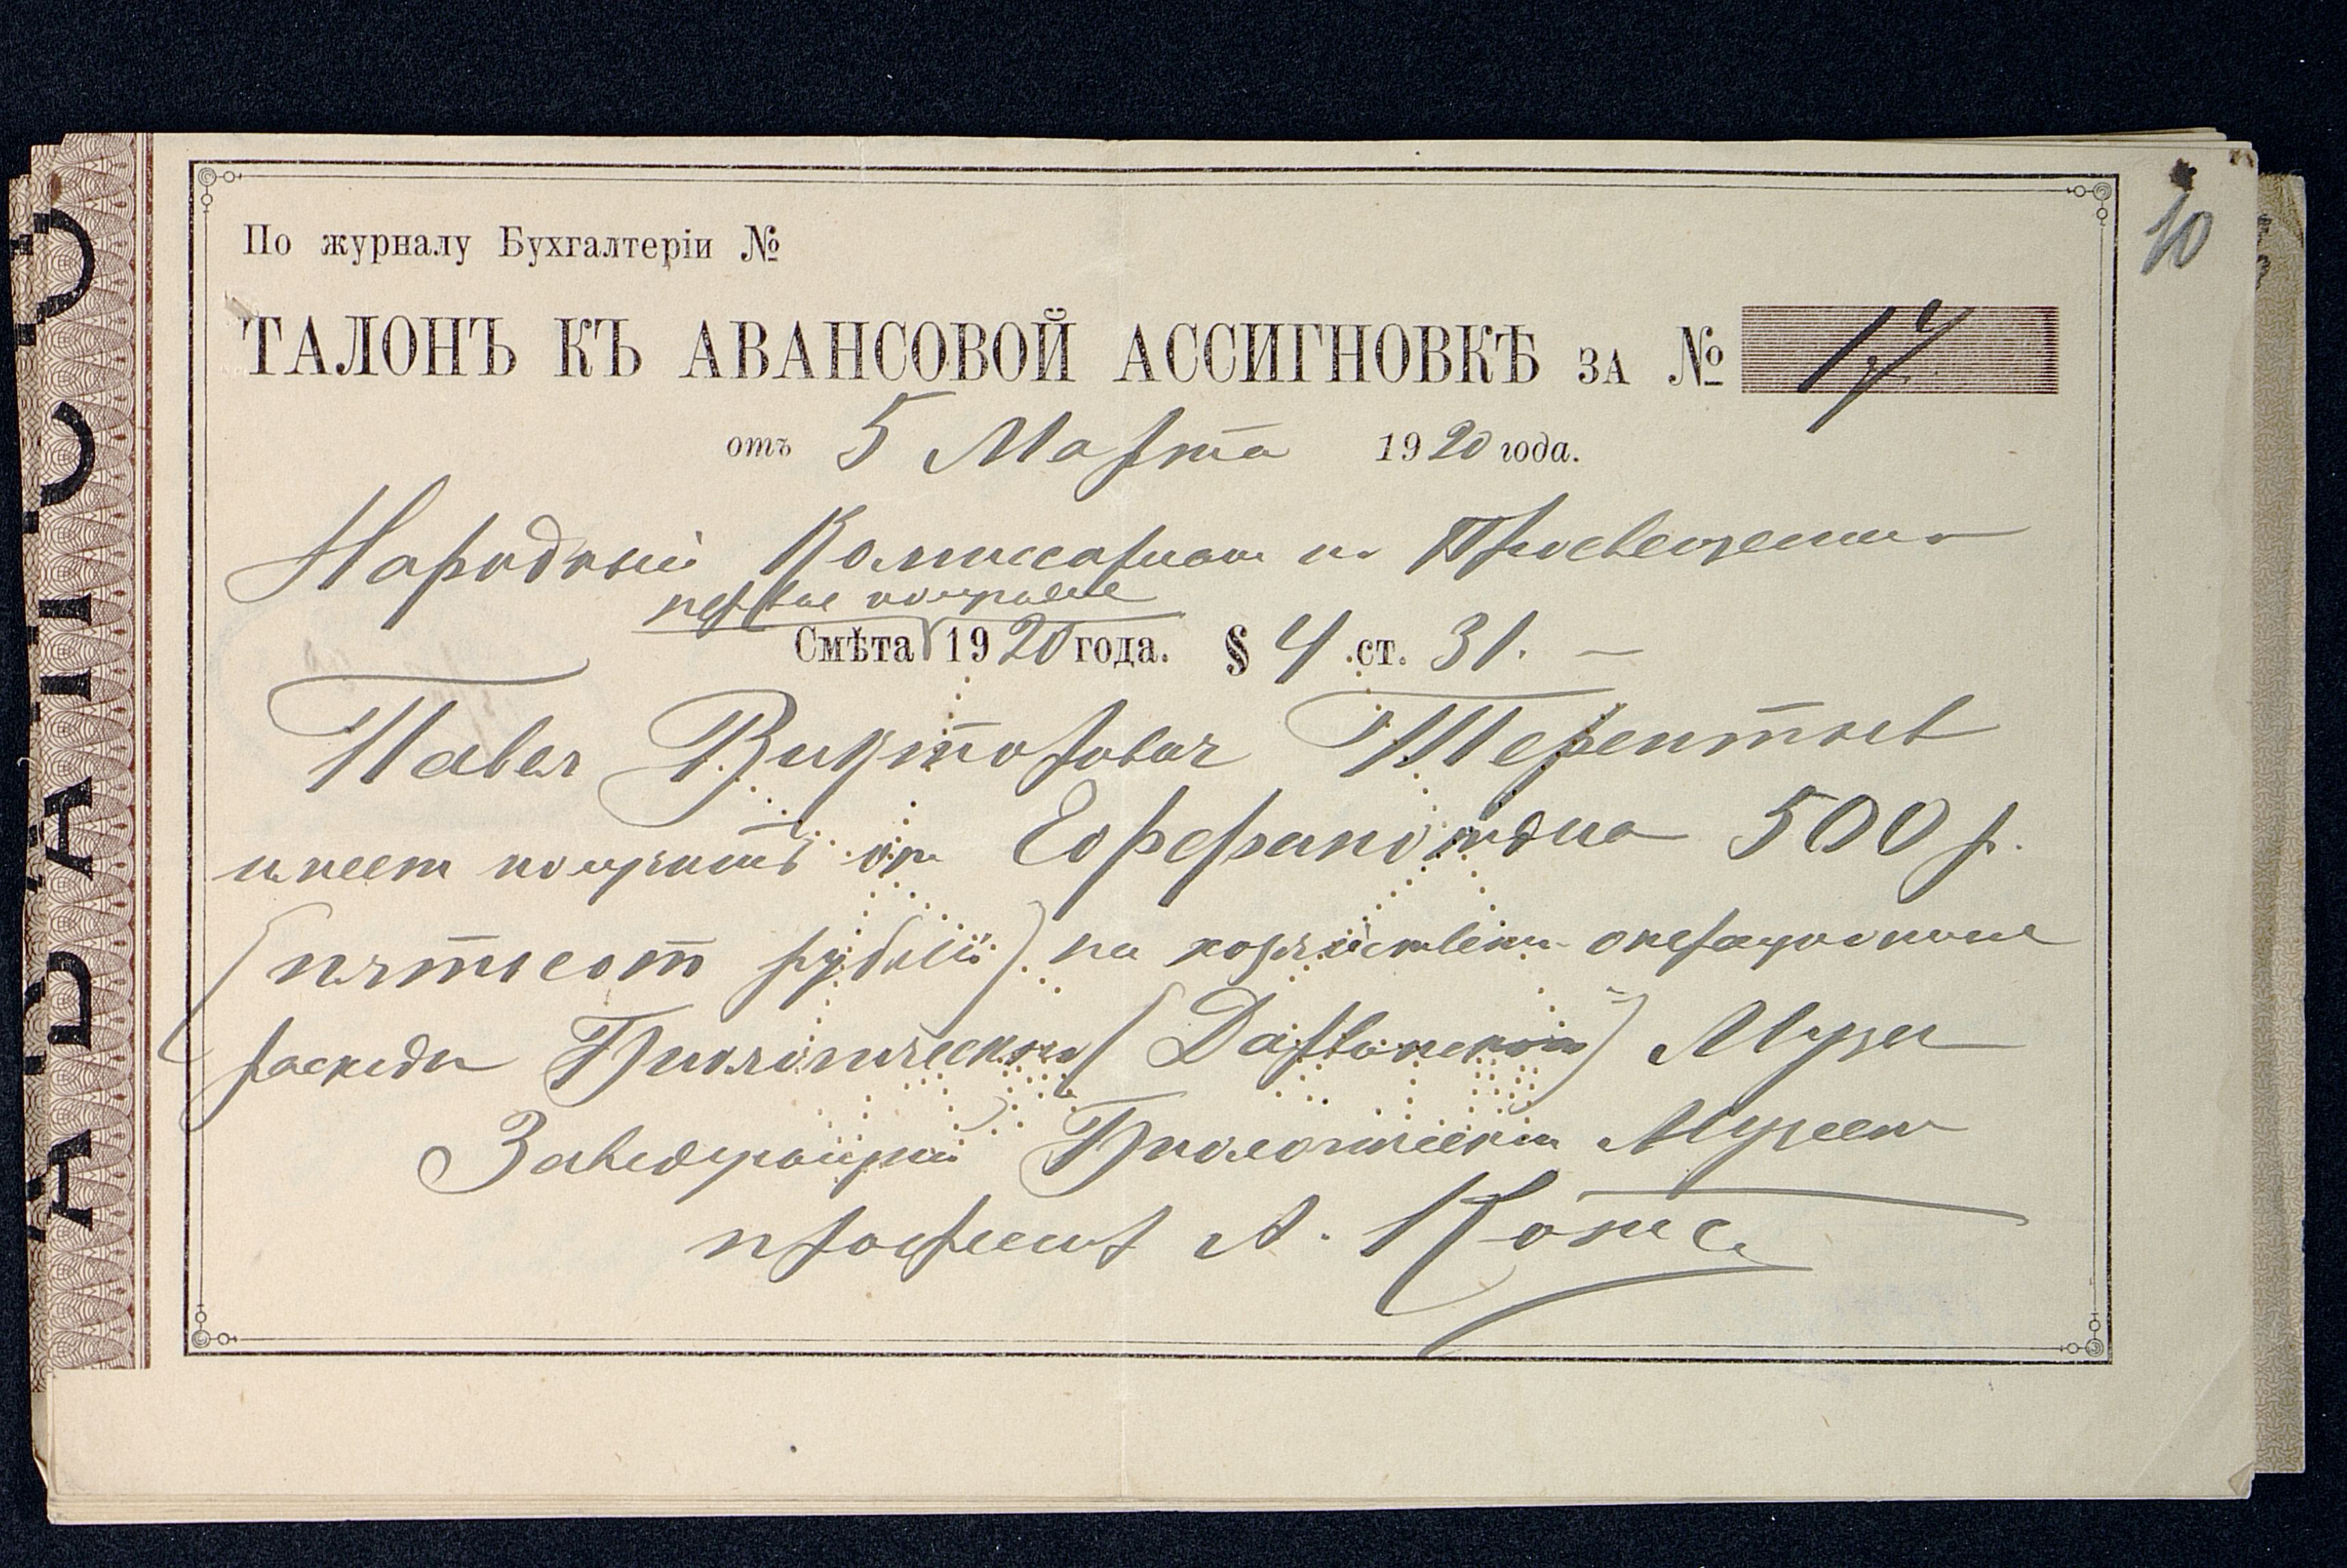 По журналу Бухгалтеріи №
10
ТАЛОНЪ КЪ АВАНСОВОЙ АССИГНОВКѢ ЗА № 17
отъ 5 Марта 1920 года.
Народный Комиссариат по Просвещению
первое полугодие
Смѣта 1920 года. § 4 ст. 31. —
Павел Викторович Терентьев
имеет получить из 500 р.
(пятьсот рублей) на хозяйствен. операционные
расходы Биологическ. (Дарвиновский) Музея
Заведующий Биологическим Музеем
профессор А. Котс
АВАНСО